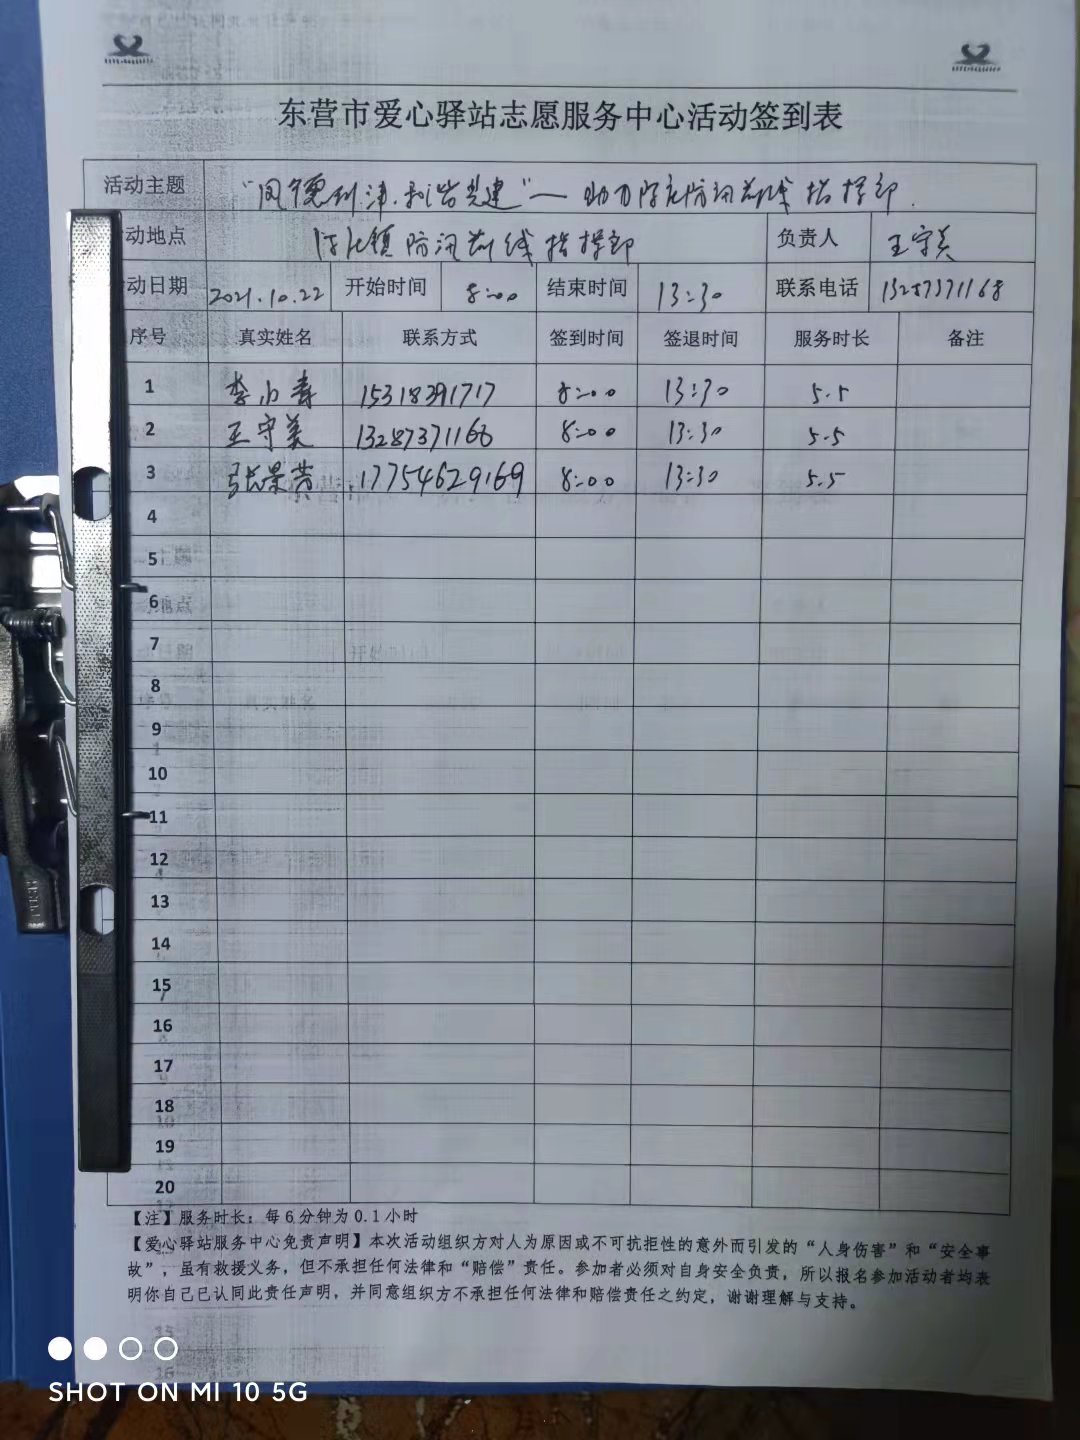 东营市爱心驿站志愿服务中心活动签到表
活动主题 "凤德利津.利岩共建"—助力陈庄防汛前线指挥部.
动地点 防汛前线指挥部 负责人 王守美
动日期 2021.10.22 开始时间 8:00 结束时间 13:30 联系电话 13287371168
序号 真实姓名 联系方式 签到时间 签退时间 服务时长 备注
1 李小寿 15318391717 8:00 13:30 5.5
2 王守美 13287371168 8:00 13:30 5.5
3 张景 17754629169 8:00 13:30 5.5
4
5
6
7
8
9
10
11
12
13
14
15
16
17
18
19
20
【注】服务时长：每6分钟为0.1小时
【爱心驿站服务中心免责声明】本次活动组织方对人为原因或不可抗拒性的意外而引发的“人身伤害”和“安全事
故”，虽有救援义务，但不承担任何法律和“赔偿”责任。参加者必须对自身安全负责，所以报名参加活动者均表
明你自己已认同此责任声明，并同意组织方不承担任何法律和赔偿责任之约定，谢谢理解与支持。
SHOT ON MI 10 5G